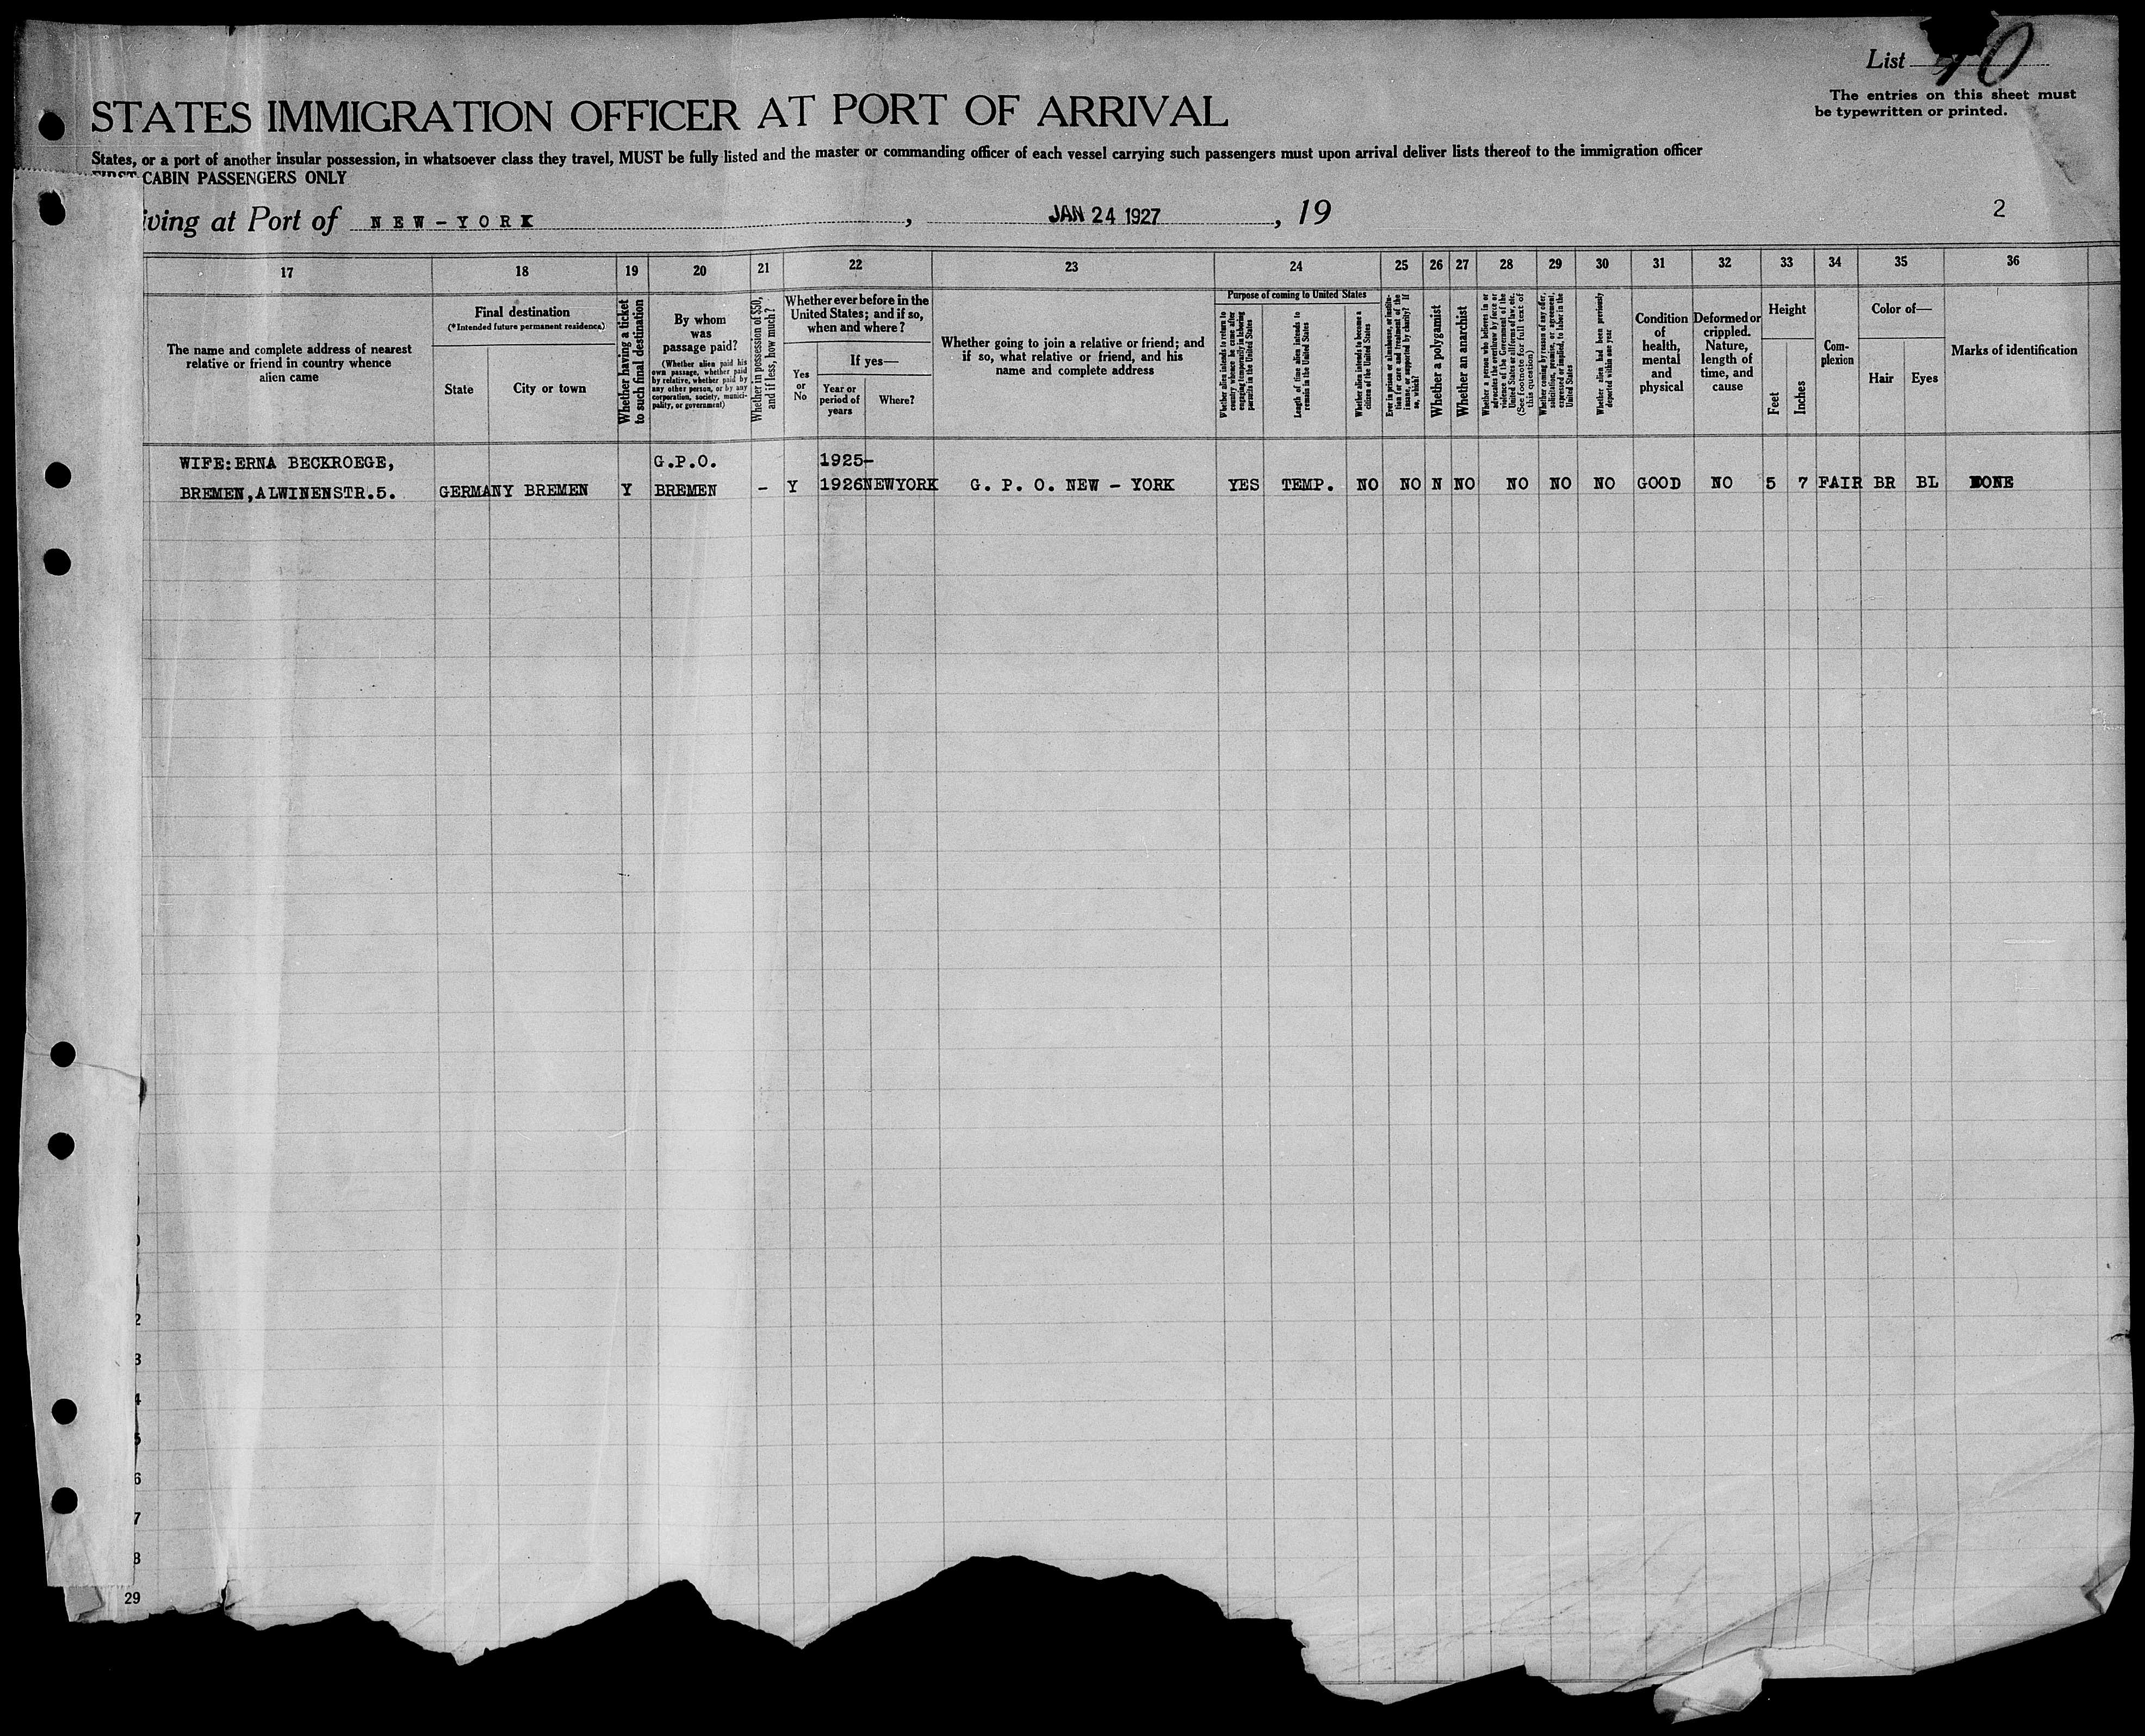 List 40
The entries on this sheet must
be typewritten or printed.
STATES IMMIGRATION OFFICER AT PORT OF ARRIVAL
States, or a port of another insular possession, in whatsoever class they travel, MUST be fully listed and the master or commanding officer of each vessel carrying such passengers must upon arrival deliver lists thereof to the immigration officer
FIRST CABIN PASSENGERS ONLY
iving at Port of NEW-YORK, JAN 24 1927, 19
2
17 18 19 20 21 22 23 24 25 26 27 28 29 30 31 32 33 34 35 36
The name and complete address of nearest
relative or friend in country whence
alien came
Final destination
(*Intended future permanent residence)
State
City or town
Whether having a ticket
to such final destination
By whom
was
passage paid?
(Whether alien paid his
own passage, whether paid
by relative, whether paid by
any other person, or by any
corporation, society, munici-
pality, or government)
Whether in possession of $50,
and if less, how much?
Whether ever before in the
United States; and if so,
when and where?
Yes
or
No
If yes—
Year or
period of
years
Where?
Whether going to join a relative or friend; and
if so, what relative or friend, and his
name and complete address
Purpose of coming to United States
Whether alien intends to return to
country whence he came after
engaging temporarily in laboring
pursuits in the United States
Length of time alien intends to
remain in the United States
Whether alien intends to become a
citizen of the United States
Ever in prison or almshouse, or institu-
tion for care and treatment of the
insane, or supported by charity? If
so, which?
Whether a polygamist
Whether an anarchist
Whether a person who believes in or
advocates the overthrow by force or
violence of the Government of the
United States or all forms of law, etc.
(See footnote for full text of
this question)
Whether coming by reason of any offer,
solicitation, promise, or agreement,
expressed or implied, to labor in the
United States
Whether alien had been previously
deported within one year
Condition
of
health,
mental
and
physical
Deformed or
crippled.
Nature,
length of
time, and
cause
Height
Feet
Inches
Com-
plexion
Color of—
Hair
Eyes
Marks of identification
WIFE:ERNA BECKROEGE, G.P.O. 1925-
BREMEN,ALWINENSTR.5. GERMANY BREMEN Y BREMEN - Y 1926 NEWYORK G. P. O. NEW - YORK YES TEMP. NO NO N NO NO NO NO GOOD NO 5 7 FAIR BR BL NONE
2
3
4
5
6
7
8
29